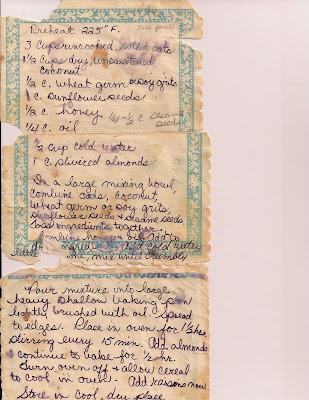 Preheat 225° F.
3 Cups uncooked, rolled oats
1 1/2 Cups dry, unsweetened
coconut
1/2 C. wheat germ or soy grits
1 C. sunflower seeds
1/2 C. honey 1/4-1/2 C Sesame
Seed
1/4 C. oil
1/2 Cup cold water
1 C. slivered almonds
In a large mixing bowl,
combine oats, coconut,
wheat germ or soy grits,
sunflower seeds & sesame seeds.
Toss ingredients together.
Combine honey & oil. Add to
dry Add cold water
little time, mix until crumbly
Pour mixture into large
heavy shallow baking pan
lightly brushed with oil. Spread
to edges. Place in oven for 1 1/2 hrs
stirring every 15 min. Add almonds
& continue to bake for 1/2 hr.
Turn oven off & allow cereal
to cool in oven. Add raisins now
Store in cool, dry place